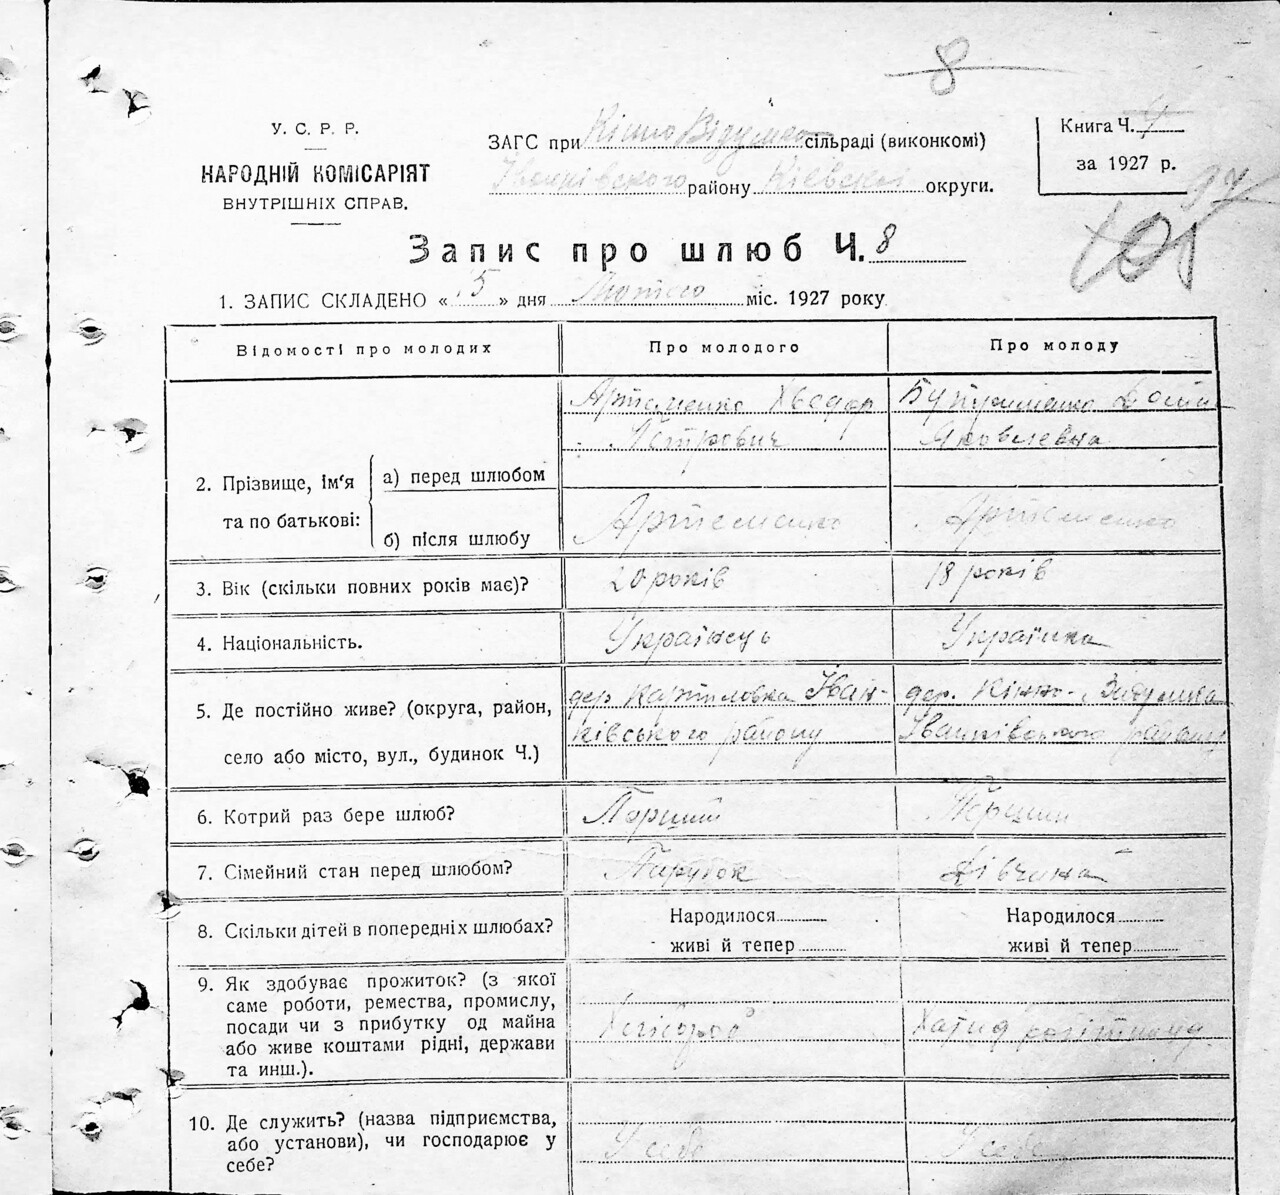 8
У. С. Р. Р.
НАРОДНІЙ КОМІСАРІЯТ
ВНУТРІШНІХ СПРАВ.
ЗАГС при Кінно Відумко сільраді (виконкомі)
Іванківского району Кіевскої округи.
Книга Ч. 4
за 1927 р.
97
101
Запис про шлюб Ч. 8
1. ЗАПИС СКЛАДЕНО « 15 » дня Лютого міс. 1927 року
Відомості про молодих Про молодого Про молоду
2. Прізвище, ім‘я та по батькові:
а) перед шлюбом
Артеменко Хведор
Петрович
Яковлевна
б) після шлюбу
Артеменко
Артеменко
3. Вік (скільки повних років має)? 20 років 18 років
4. Національність. Українець Українка
5. Де постійно живе? (округа, район,
село або місто, вул., будинок Ч.)
дер. Карпиловка Іван-
ківського району
дер. Кінно-
Іванківського району
6. Котрий раз бере шлюб? Перший Перший
7. Сімейний стан перед шлюбом? Парубок Дівчина
8. Скільки дітей в попередніх шлюбах?
Народилося
живі й тепер
Народилося
живі й тепер
9. Як здобуває прожиток? (з якої
саме роботи, ремества, промислу,
посади чи з прибутку од майна
або живе коштами рідні, держави
та инш.).
Хлібороб
10. Де служить? (назва підприємства,
або установи), чи господарює у
себе?
У себе
У себе